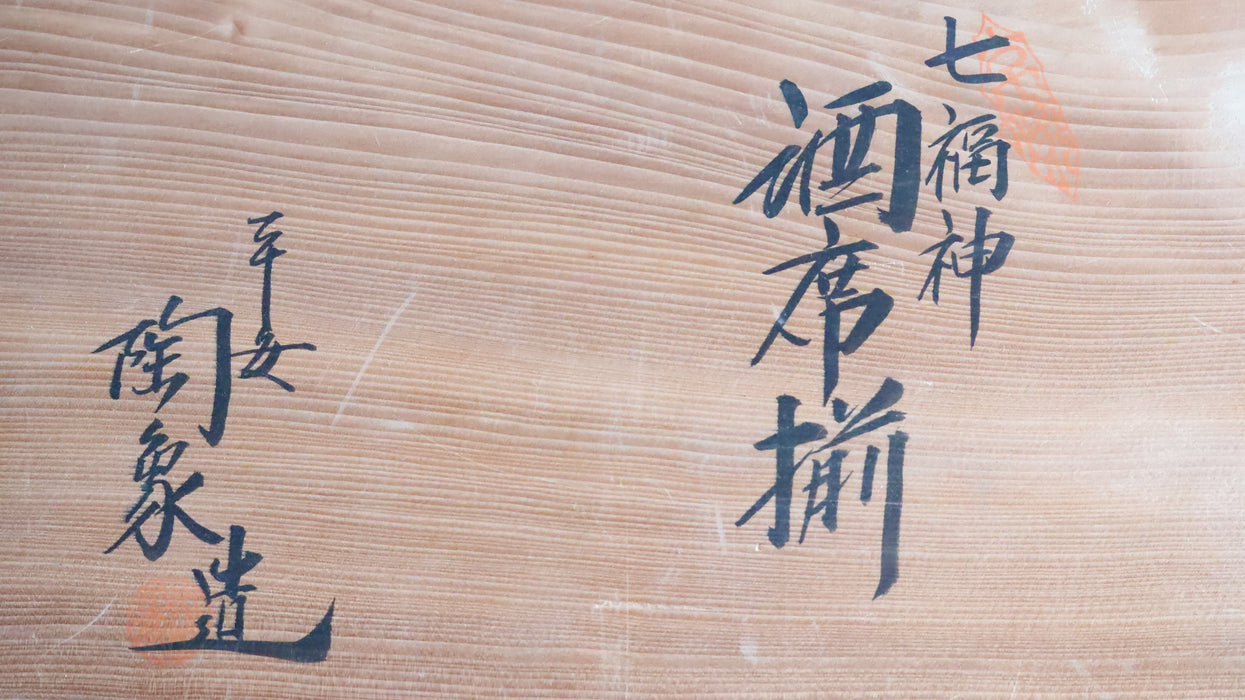 七福神
酒席揃
平安
陶象造